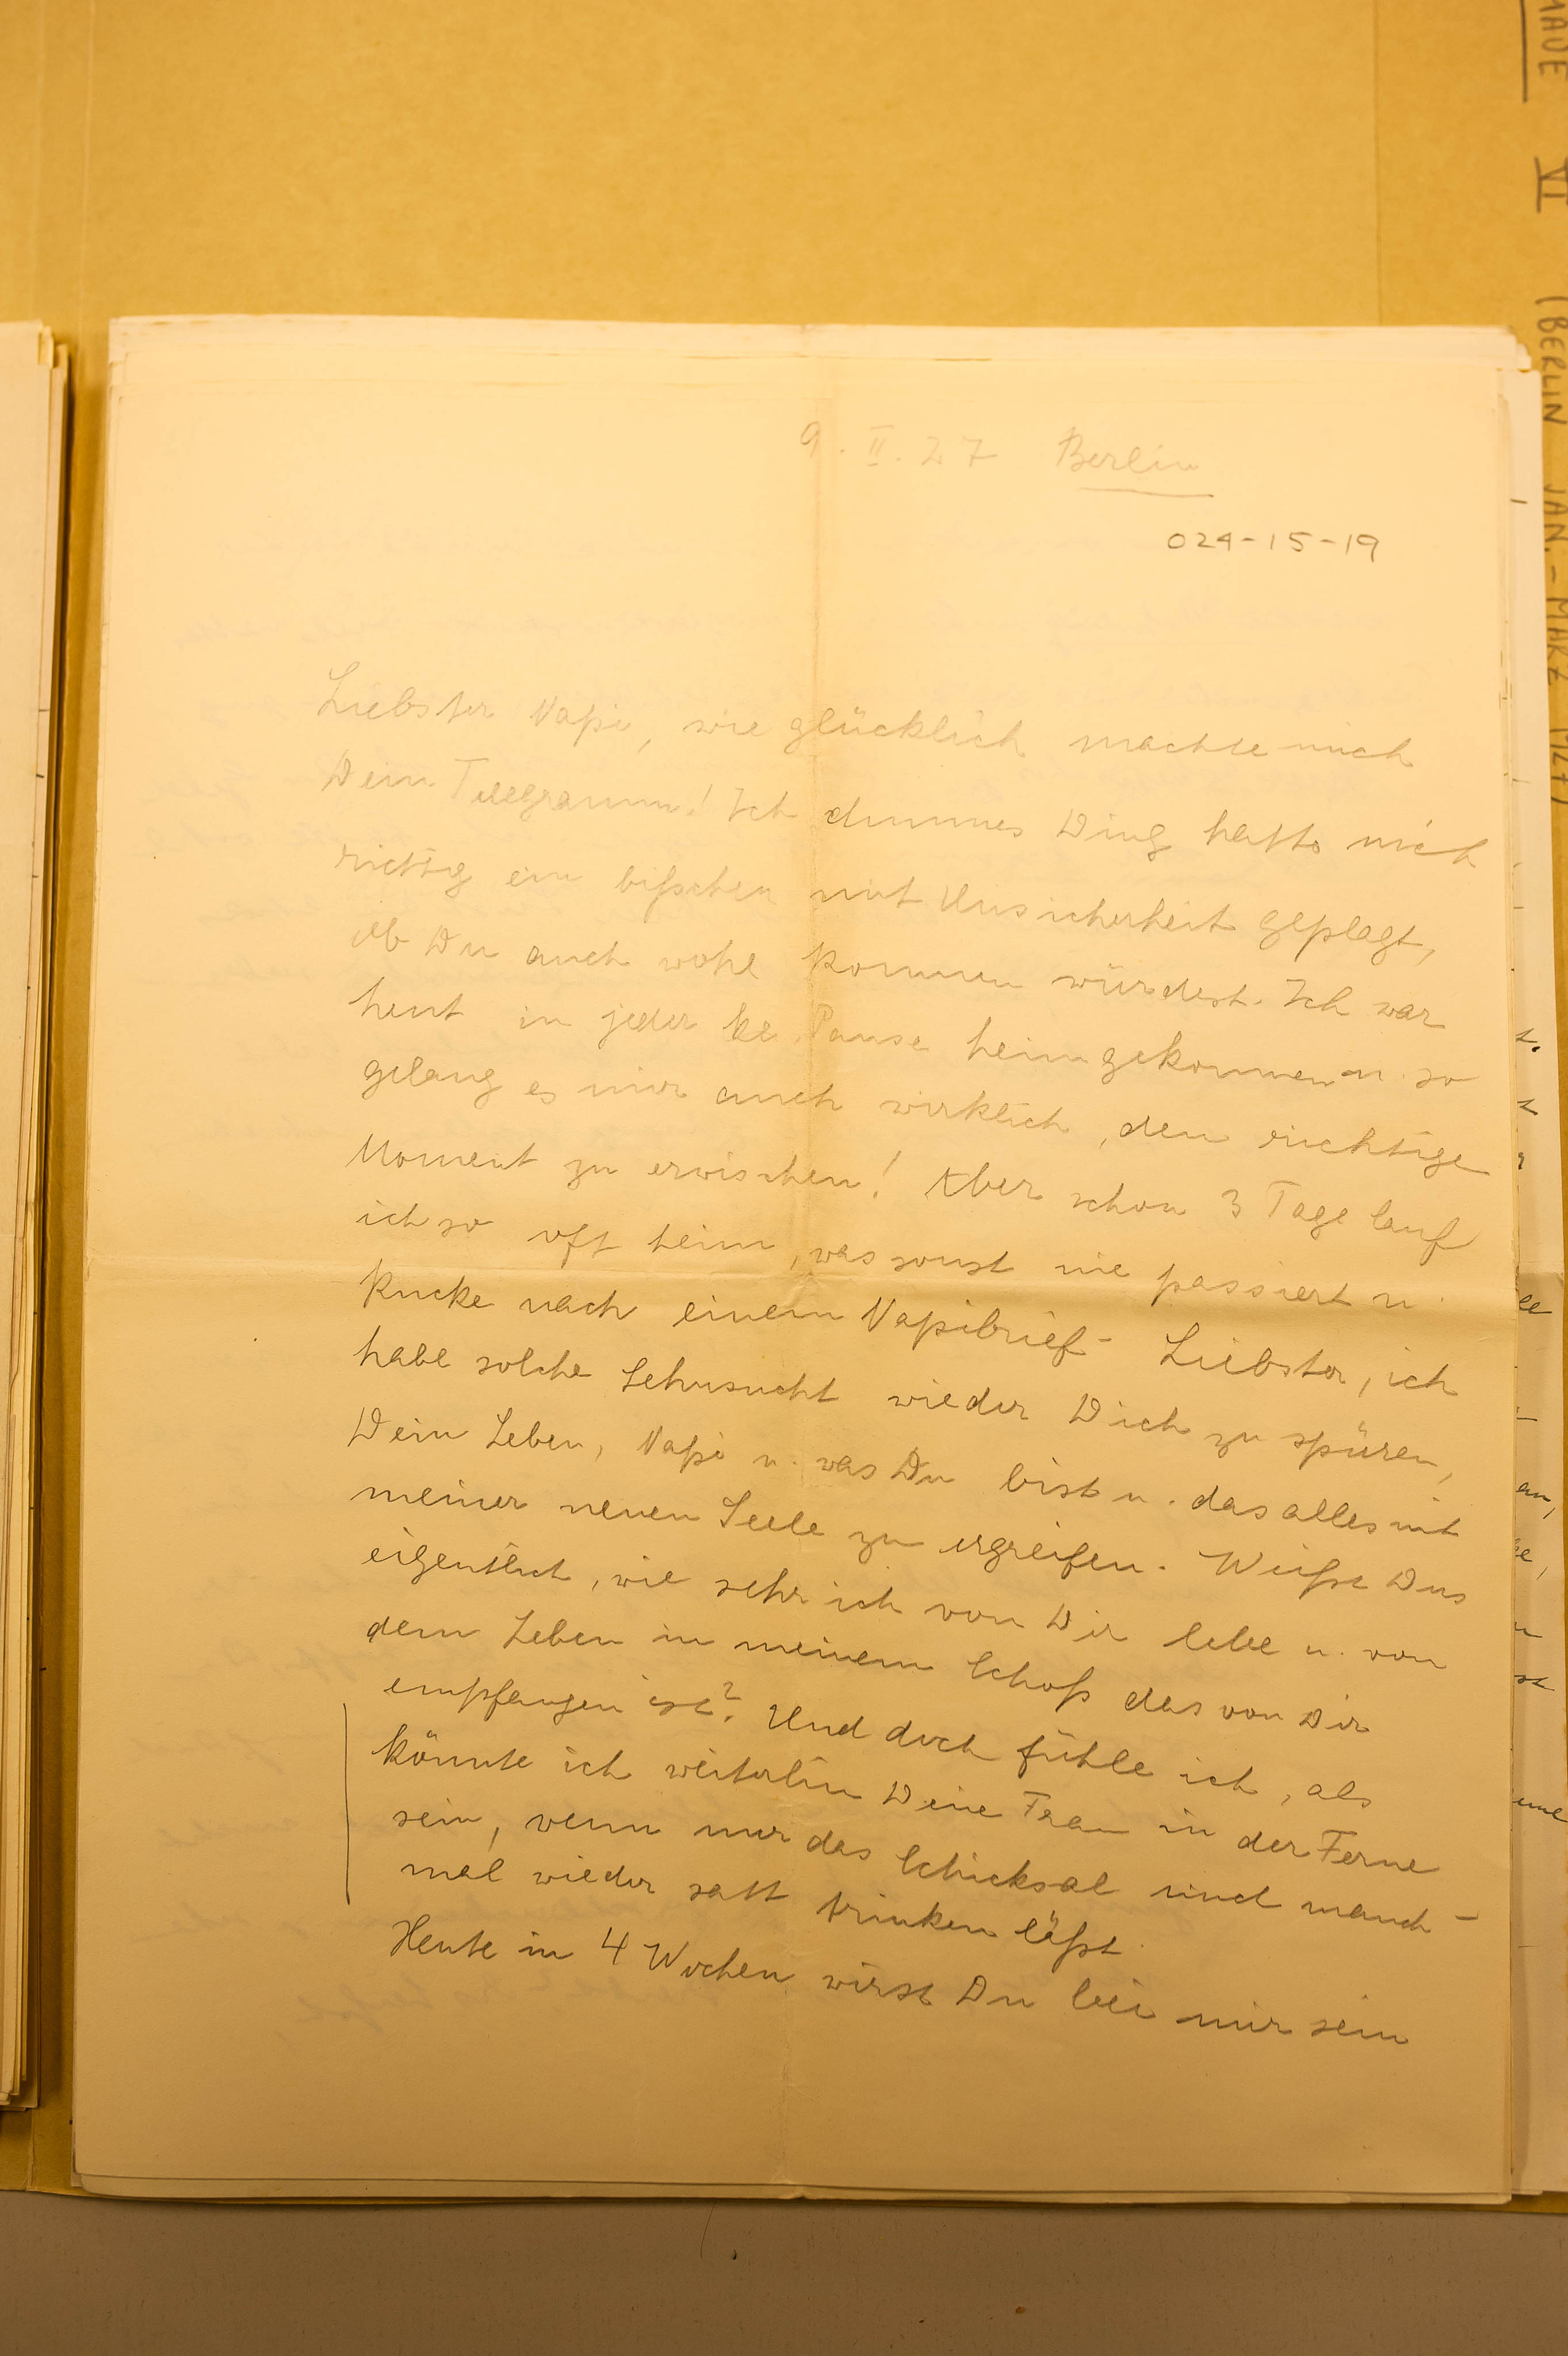 9. II. 27 Berlin
024-15-19
Liebster Napi, wie glücklich machte mich
Dein Telegramm! Ich dummes Ding hatte mich
richtig ein bißchen mit Unsicherheit geplagt,
ob Du auch wohl kommen würdest. Ich war
heut in jeder kl. Pause heimgekommen u. so
gelang es mir auch wirklich, den richtigen
Moment zu erwischen! Aber schon 3 Tage lauf
ich so oft heim, was sonst nie passiert u.
kucke nach einem Napibrief - Liebster, ich
habe solche Sehnsucht wieder Dich zu spüren,
Dein Leben, Napi u. was Du bist u. das alles mit
meiner neuen Seele zu ergreifen. Weißt Du's
eigentlich, wie sehr ich von Dir lebe u. von
dem Leben in meinem Schoß das von Dir
empfangen ist? Und doch fühle ich, als
könnte ich weiterhin Deine Frau in der Ferne
sein, wenn nur das Schicksal uns manch-
mal wieder satt trinken läßt.
Heute in 4 Wochen wirst Du bei mir sein
MAUE VI (BERLIN JAN. - MÄRZ 1927)